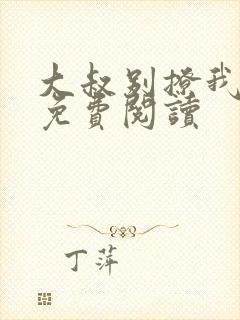 大叔别撩我
免費閱讀
丁萍